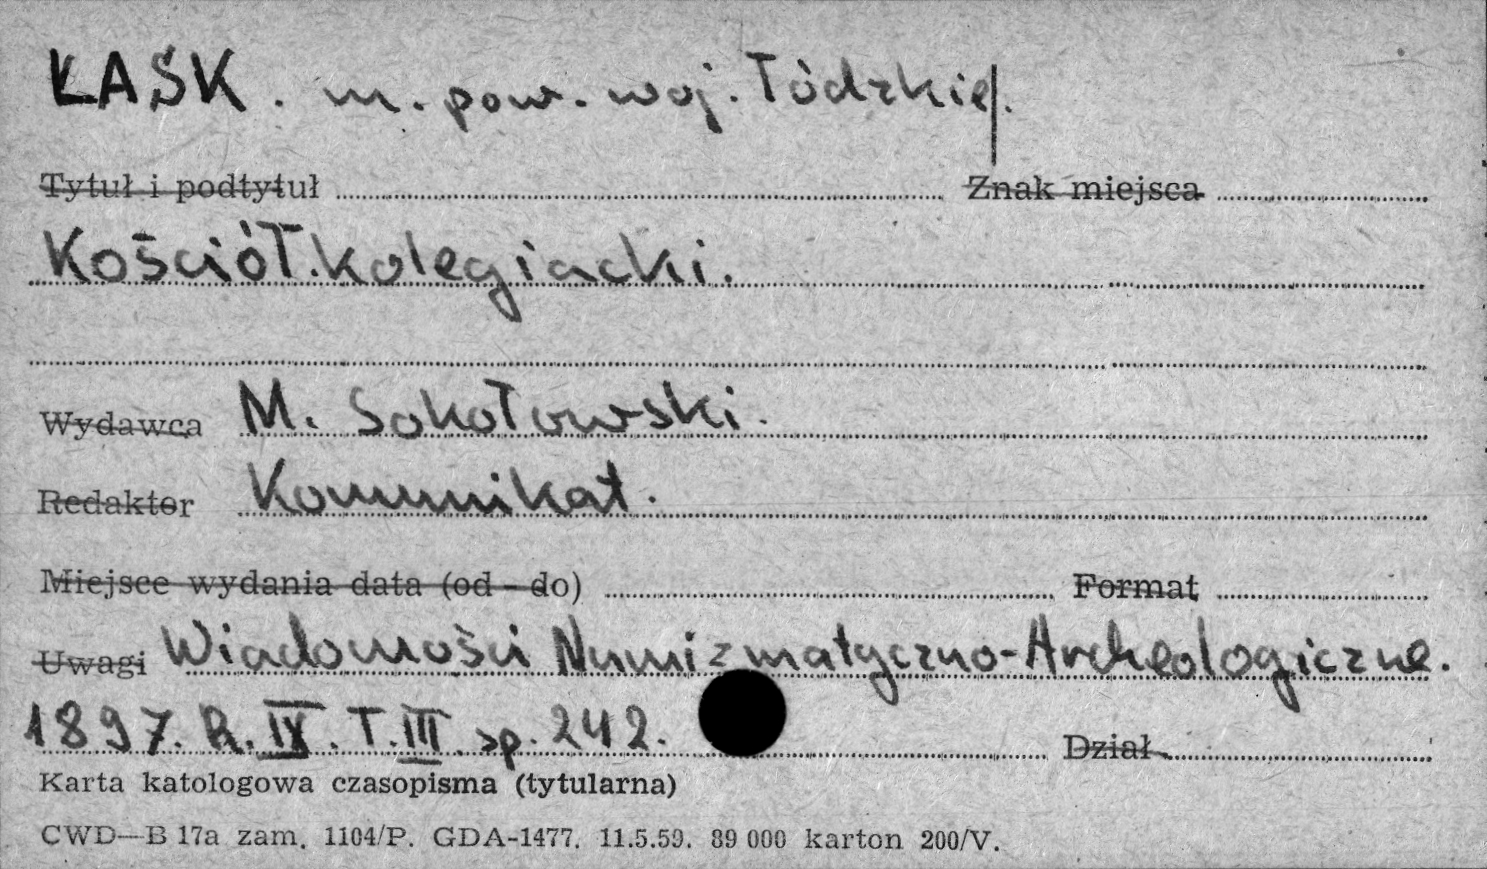 ŁASK. m. pow. woj. łódzkie.
Tytuł i podtytuł Znak miejsca
Kościół kolegiacki.
Wydawca M. Sokołowski.
Redaktor Komunikat.
Miejsce wydania data (od - do) Format
Uwagi Wiadomości Numizmatyczno-Archeologiczne.
1897. R. IX. T. III. szp. 242. Dział
Karta katologowa czasopisma (tytularna)
CWD—B 17a zam. 1104/P. GDA-1477. 11.5.59. 89 000 karton 200/V.